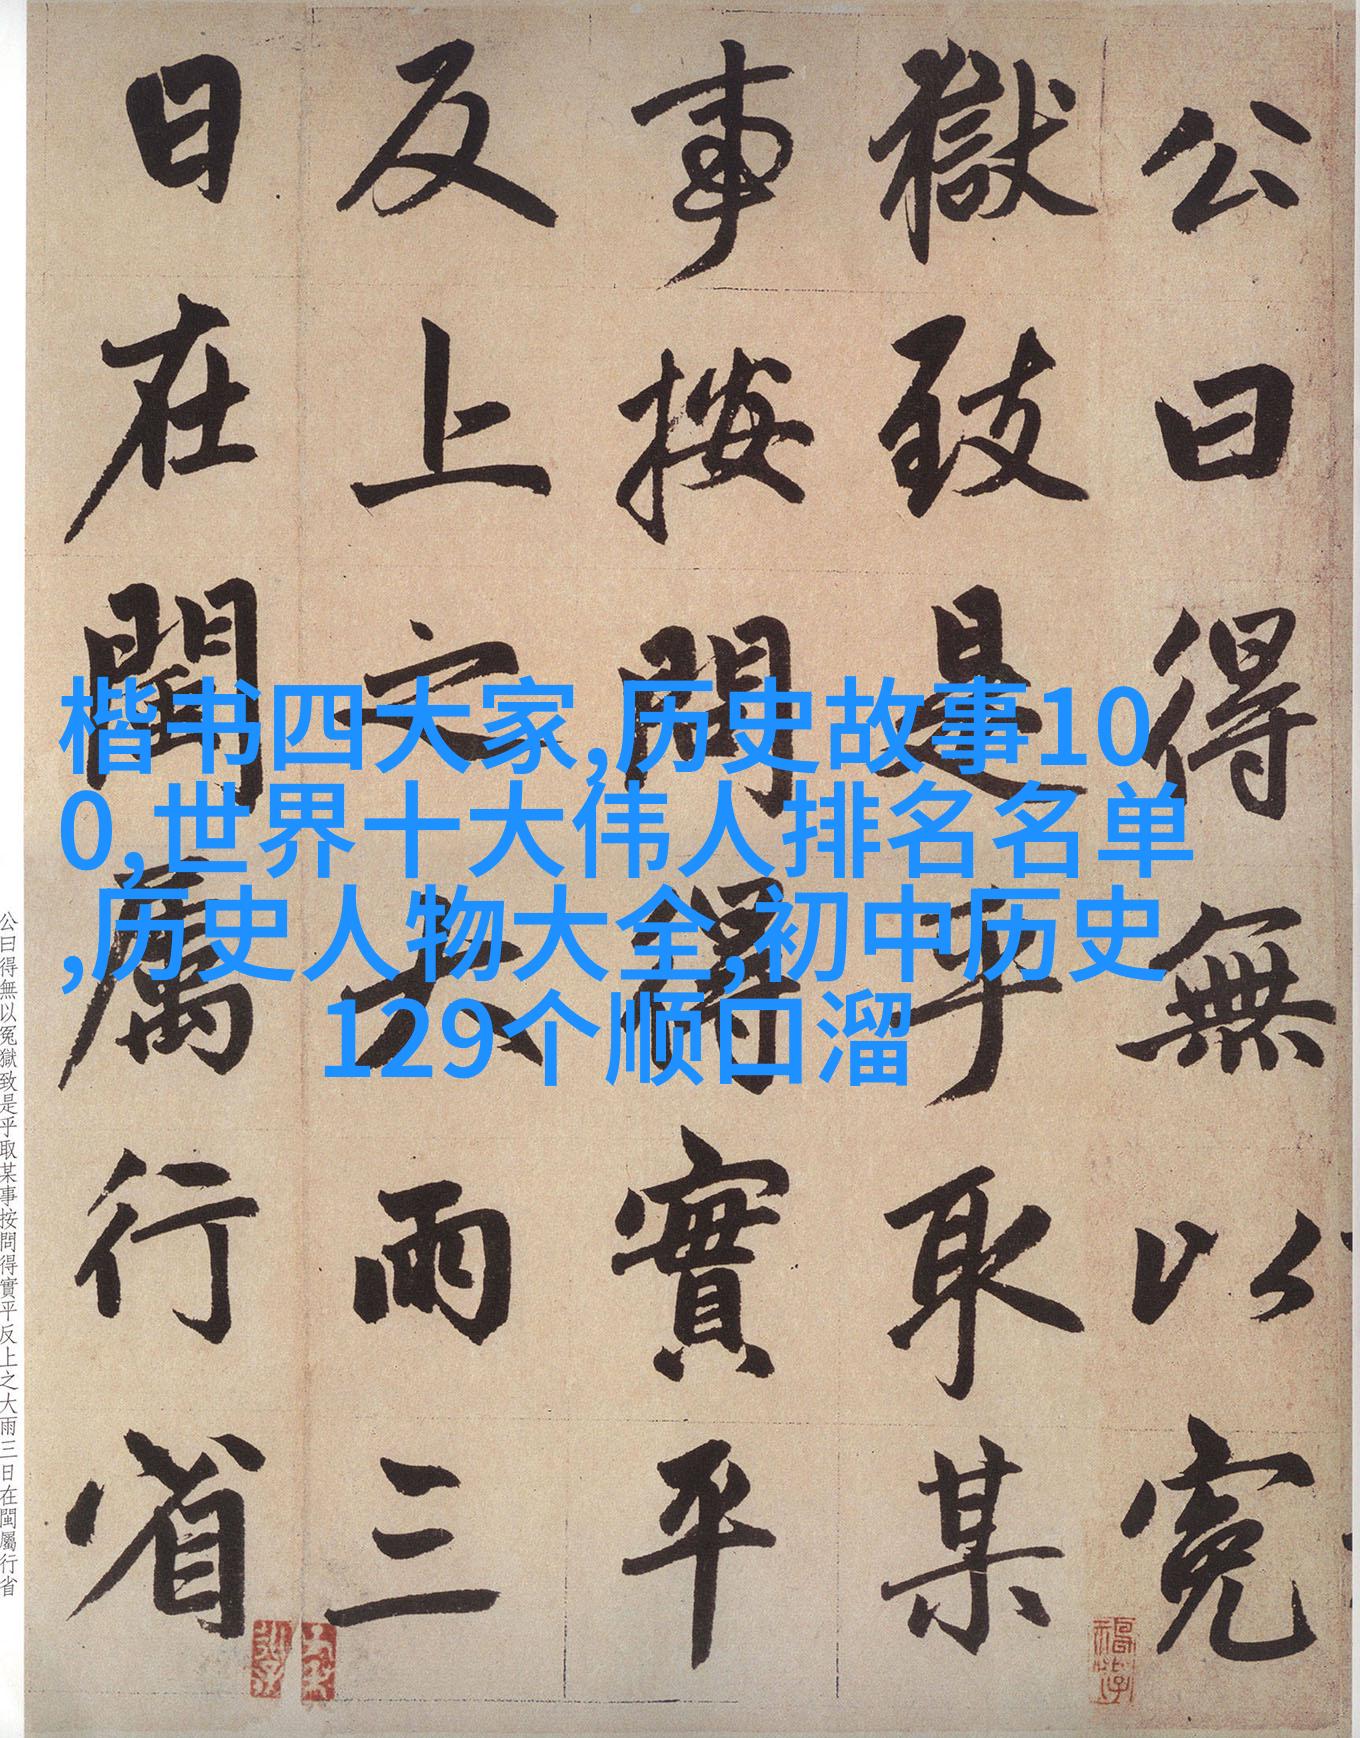 公曰得無以冤
獄致是乎取某
事按問得實平
反上之大雨三
日在閩屬行省
楷书四大家,历史故事10
0,世界十大伟人排名名单
,历史人物大全,初中历史
129个顺口溜
公曰得無以冤獄致是乎取某事按問得實平反上之大雨三日在閩屬行省